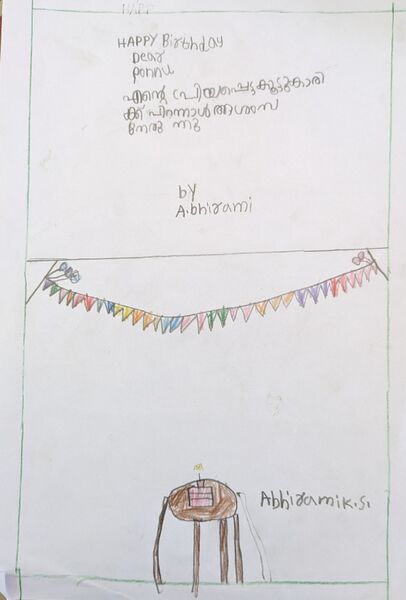 HAPP
HAPPY Birthday
Dear
ponnu
എന്റെ പ്രിയപ്പെട്ട കൂട്ടുകാരി
ക്ക് പിറന്നാൾ ആശംസ
നേരു ന്നു
by
Abhirami
Abhirami K.S.